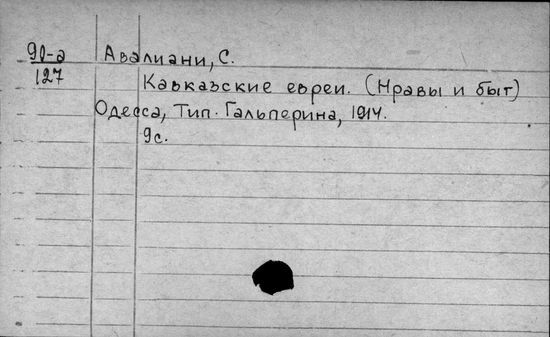 90-а Авалиани, С.
127
Кавказские евреи. (Нравы и быт)
Одесса, Тип. Гальперина, 1914.
9с.